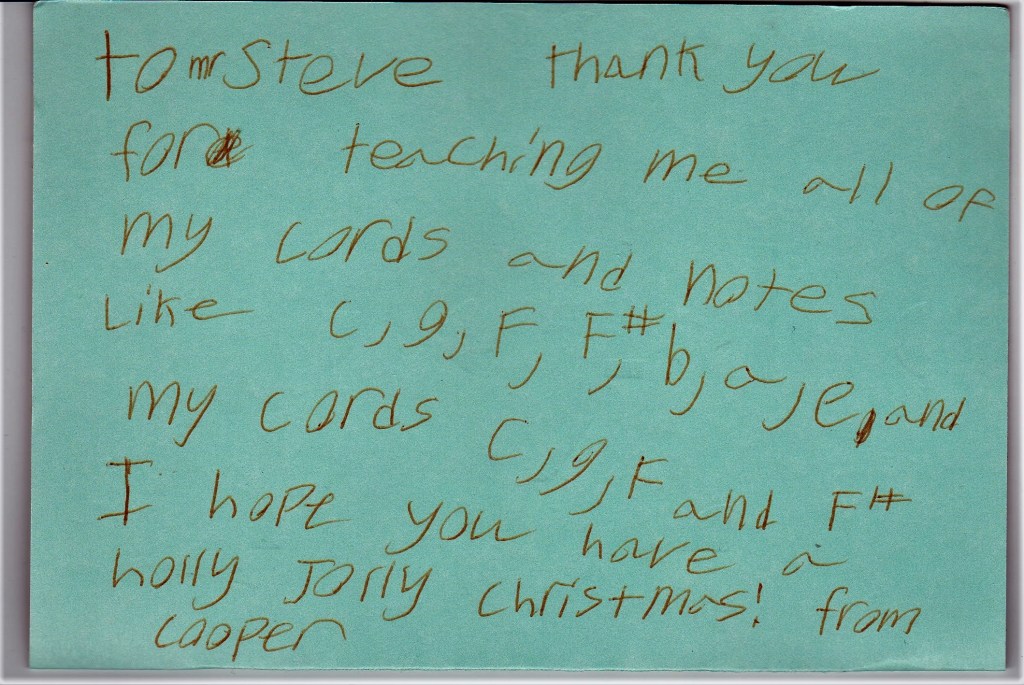 to mr Steve thank you
for teaching me all of
my cords and notes
Like C, g, F, F#, b, a, e, and
my cords C, g, F and F#
I hope you have a
holly Jolly christmas! from
cooper